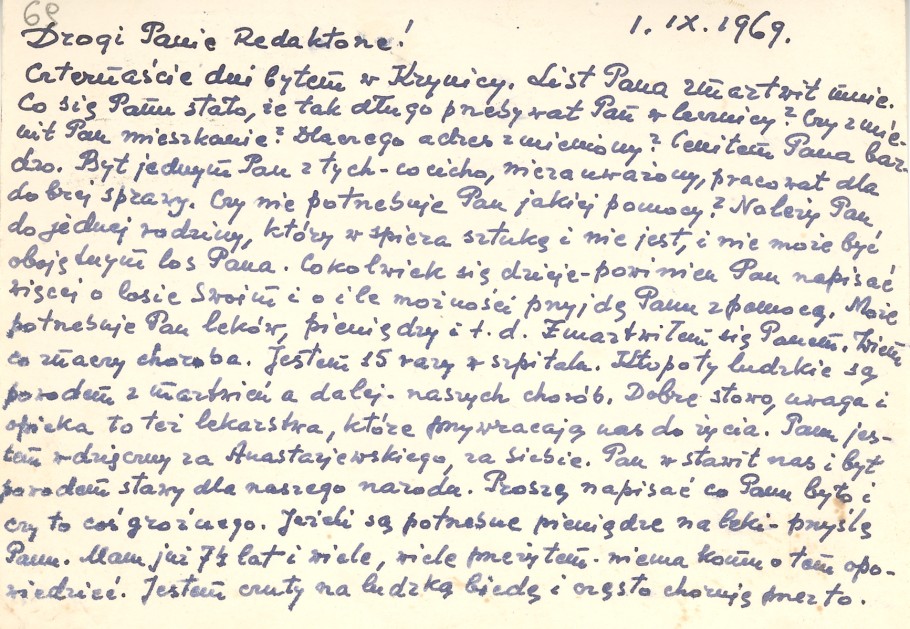 69
1. IX. 1969.
Drogi Panie Redaktorze!
Czternaście dni byłem w Krynicy. List Pana zmartwił mnie.
Co się Panu stało, że tak długo przebywał Pan w lecznicy? Czy zmie-
nił Pan mieszkanie? Dlaczego adres zmieniony? Ceniłem Pana bar-
dzo. Był jednym Pan z tych - co cicho, niezauważony, pracował dla
dobrej sprawy. Czy nie potrzebuje Pan jakiej pomocy? Należy Pan
do jednej rodziny, który wspiera sztukę i nie jest, i nie może być
obojętnym los Pana. Cokolwiek się dzieje - powinien Pan napisać
więcej o losie Swoim i o ile możności przyjdę Panu z pomocą. Może
potrzebuje Pan leków, pieniędzy i t. d. Zmartwiłem się Panem. Wiem
co znaczy choroba. Jestem 15 razy w szpitalu. Kłopoty ludzkie są
powodem zmartwień a dalej - naszych chorób. Dobre słowo, uwaga i
opieka to też lekarstwa, które przywracają nas do życia. Panu jes-
tem wdzięczny za Anastazewskiego, za siebie. Pan wsławił nas i był
powodem sławy dla naszego narodu. Proszę napisać co Panu było i
czy to coś groźnego. Jeżeli są potrzebne pieniądze na leki - przyślę
Panu. Mam już 74 lat i wiele, wiele przeżyłem - niema komu o tem opo-
wiedzieć. Jestem czuły na ludzką biedę i często choruję przez to.